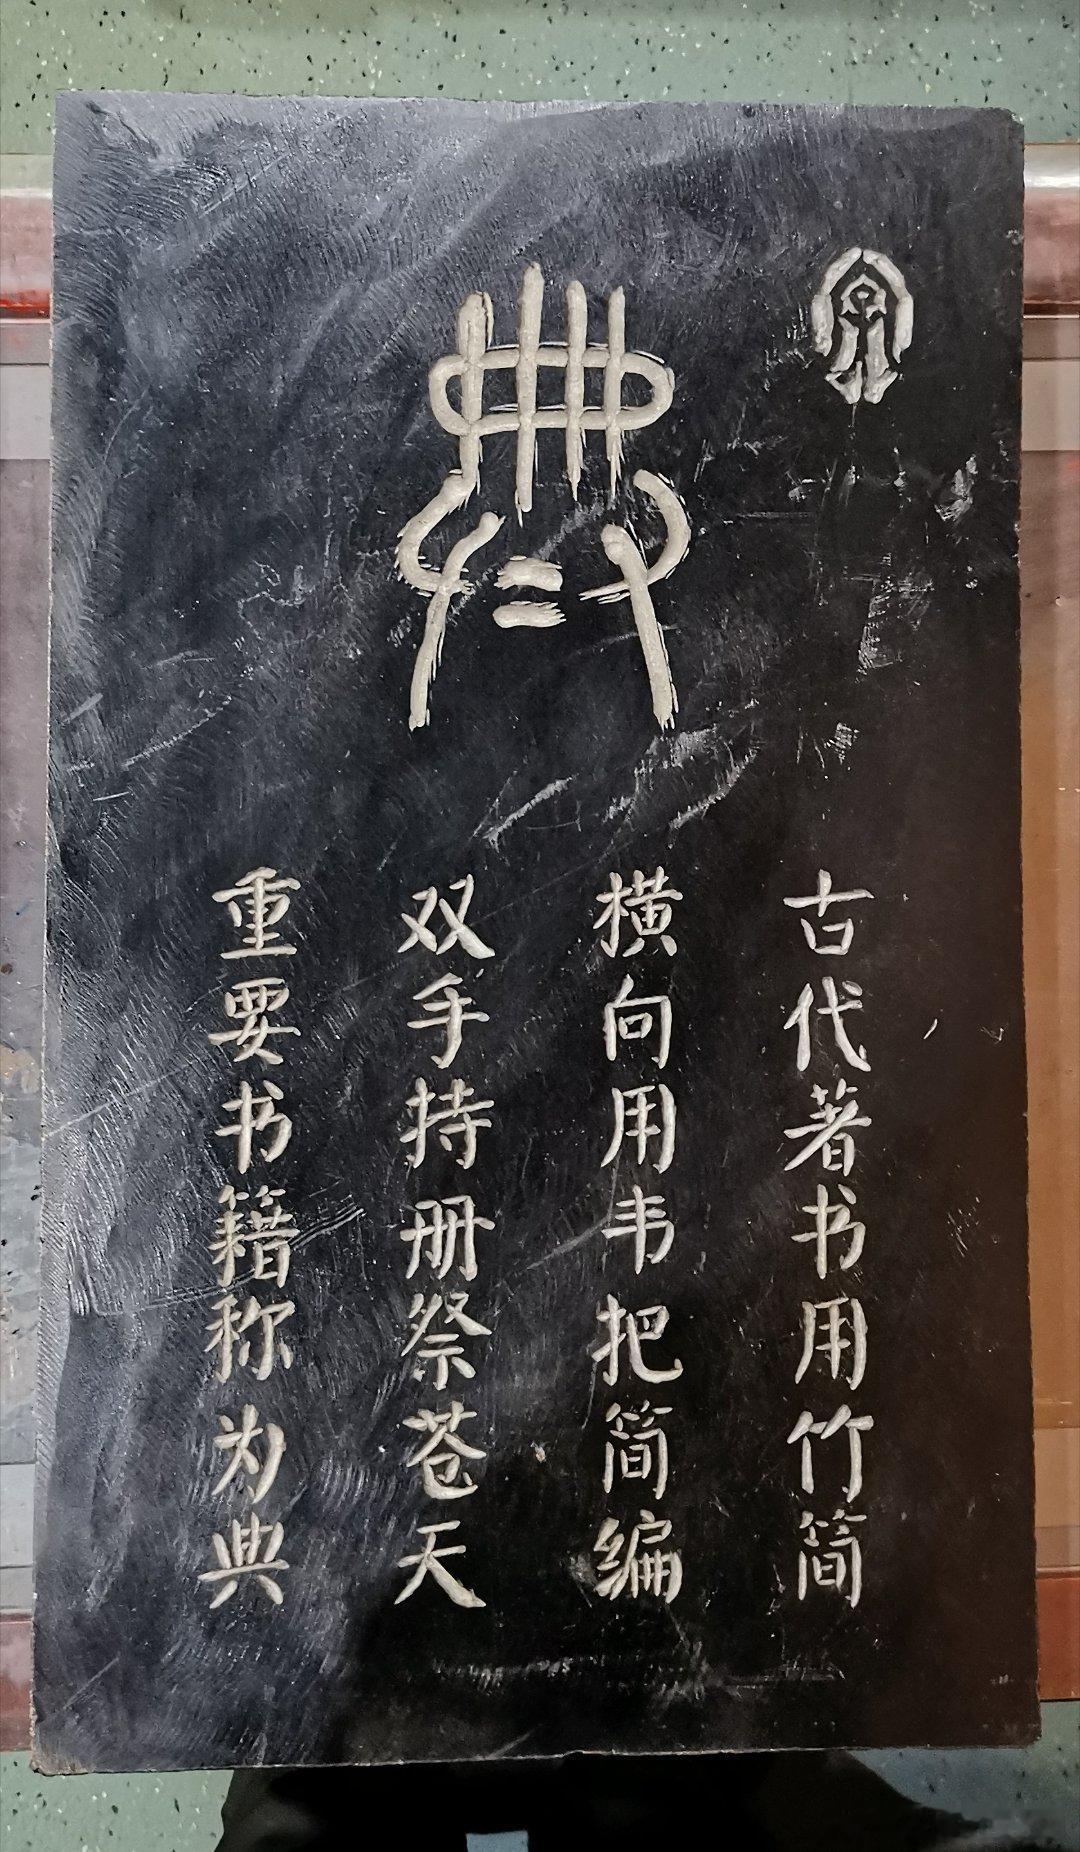 典
古代著书用竹简
横向用韦把简编
双手持册祭苍天
重要书籍称为典